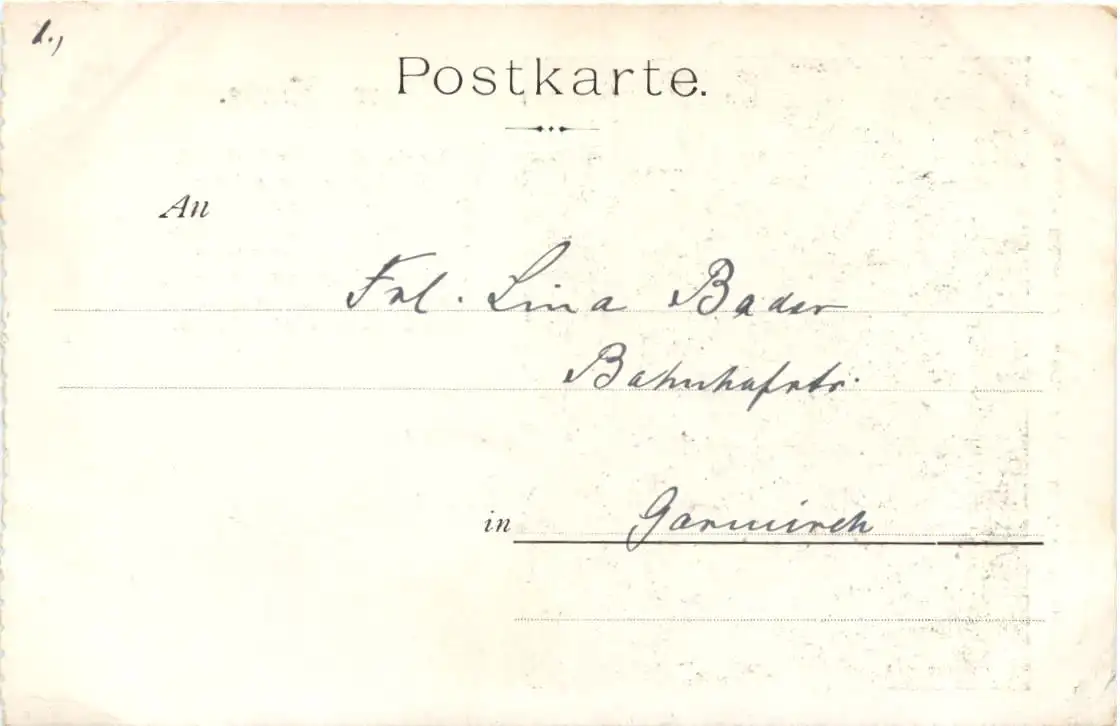 1.,
Postkarte.
An
Frl. Lina Bader
Bahnhofstr.
in Garmisch